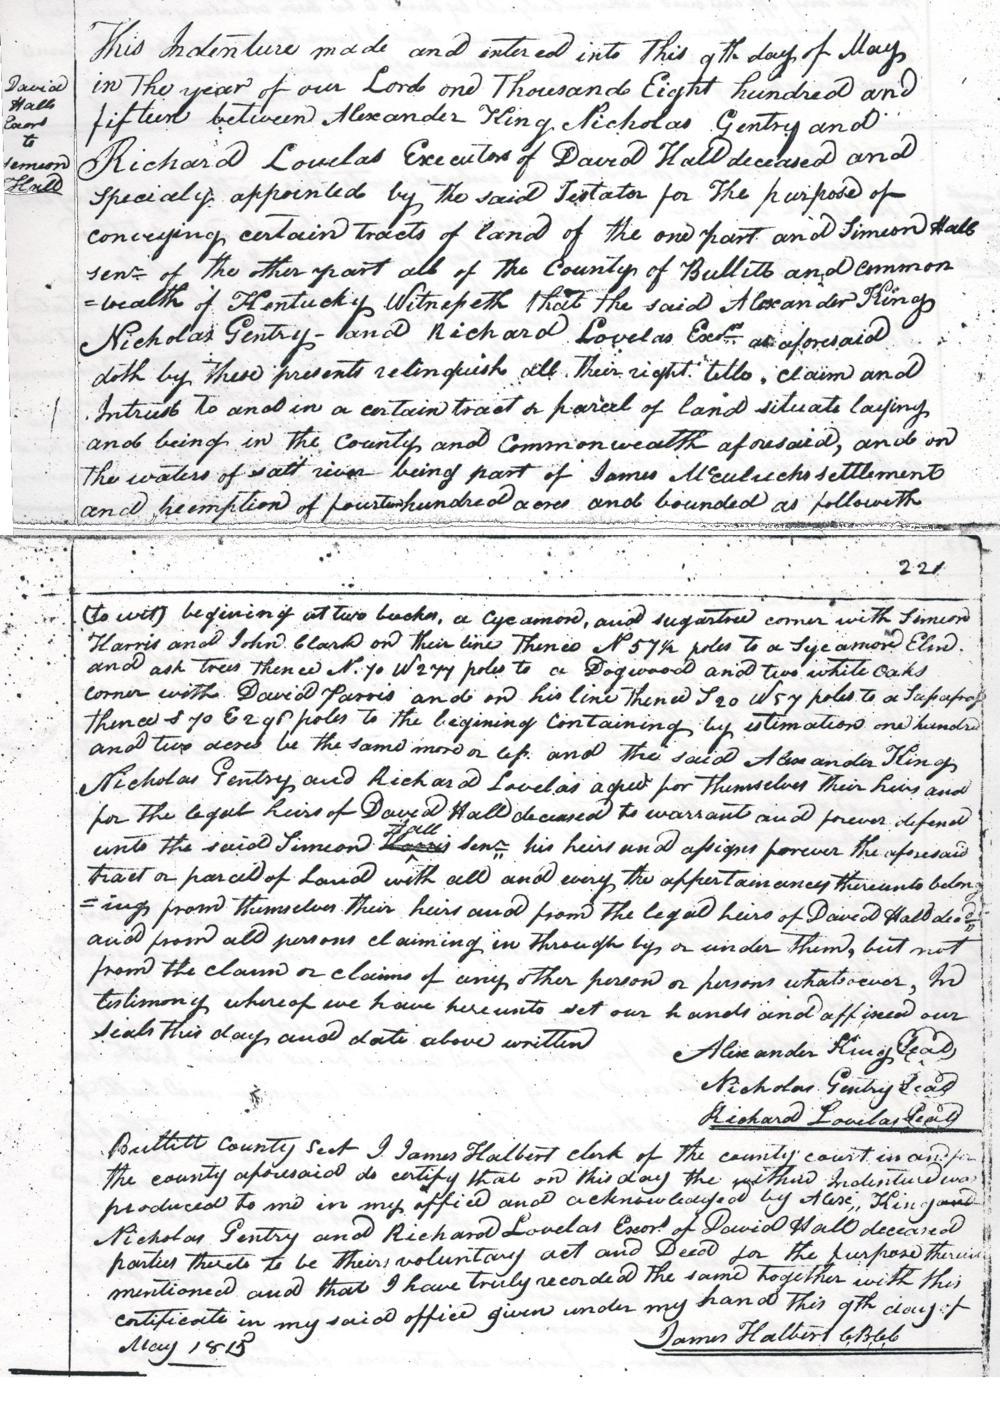 David
Hall
Exors
to
Simeon
Hall
This Indenture made and entered into this 9th day of May
in the year of our Lord one Thousand Eight hundred and
fifteen between Alexander King Nicholas Gentry and
Richard Lovelas Executors of David Hall deceased and
Specialy appointed by the said Testator for The purpose of
conveying certain tracts of land of the one part and Simeon Hall
senr of the other part all of the County of Bullitt and common
=wealth of Kentucky Witnesseth that the said Alexander King
Nicholas Gentry and Richard Lovelas Exors as aforesaid
doth by these presents relinquish all their right title, claim and
Intrust to and in a certain tract or parcel of land situate laying
and being in the County and Commonwealth aforesaid, and on
the waters of salt river being part of James McCulochs settlement
and preemption of fourteen hundred acres and bounded as followith
221
(to wit) begining at two buckes, a Cycamore, and sugartree corner with Simeon
Harris and John Clark on their line thence N 57½ poles to a Sycamore Elm
and ash trees thence N. 70 W 277 poles to a Dogwood and two white Oaks
corner with David Farris and on his line thence S 20 W 57 poles to a Sassafras
thence S 70 E 298 poles to the begining Containing by estimation one hundred
and two acres be the same more or less. and the said Alexander King
Nicholas Gentry and Richard Lovelas agree for themselves their heirs and
for the legal heirs of David Hall deceased to warrant and forever defend
unto the said Simeon Harris Hall senr his heirs and assigns forever the aforesaid
tract or parcel of Land with all and every the appertainances thereunto belong
=ing from themselves their heirs and from the legal heirs of David Hall decd
and from all persons claiming in through by or under them, but not
from the claim or claims of any other person or persons whatsoever, In
testimony whereof we have hereunto set our hands and affixed our
seals this day and date above written
Alexander King Seal
Nicholas Gentry Seal
Richard Lovelas Seal
Bullitt County Sect I James Halbert clerk of the county court in and for
the county aforesaid do certify that on this day the within Indenture was
produced to me in my office and acknowledged by Alexr King and
Nicholas Gentry and Richard Lovelas Exors of David Hall deceased
parties thereto to be their voluntary act and Deed for the purpose therein
mentioned and that I have truly recorded the same together with this
certificate in my said office given under my hand this 9th day of
May 1815
James Halbert CBCC